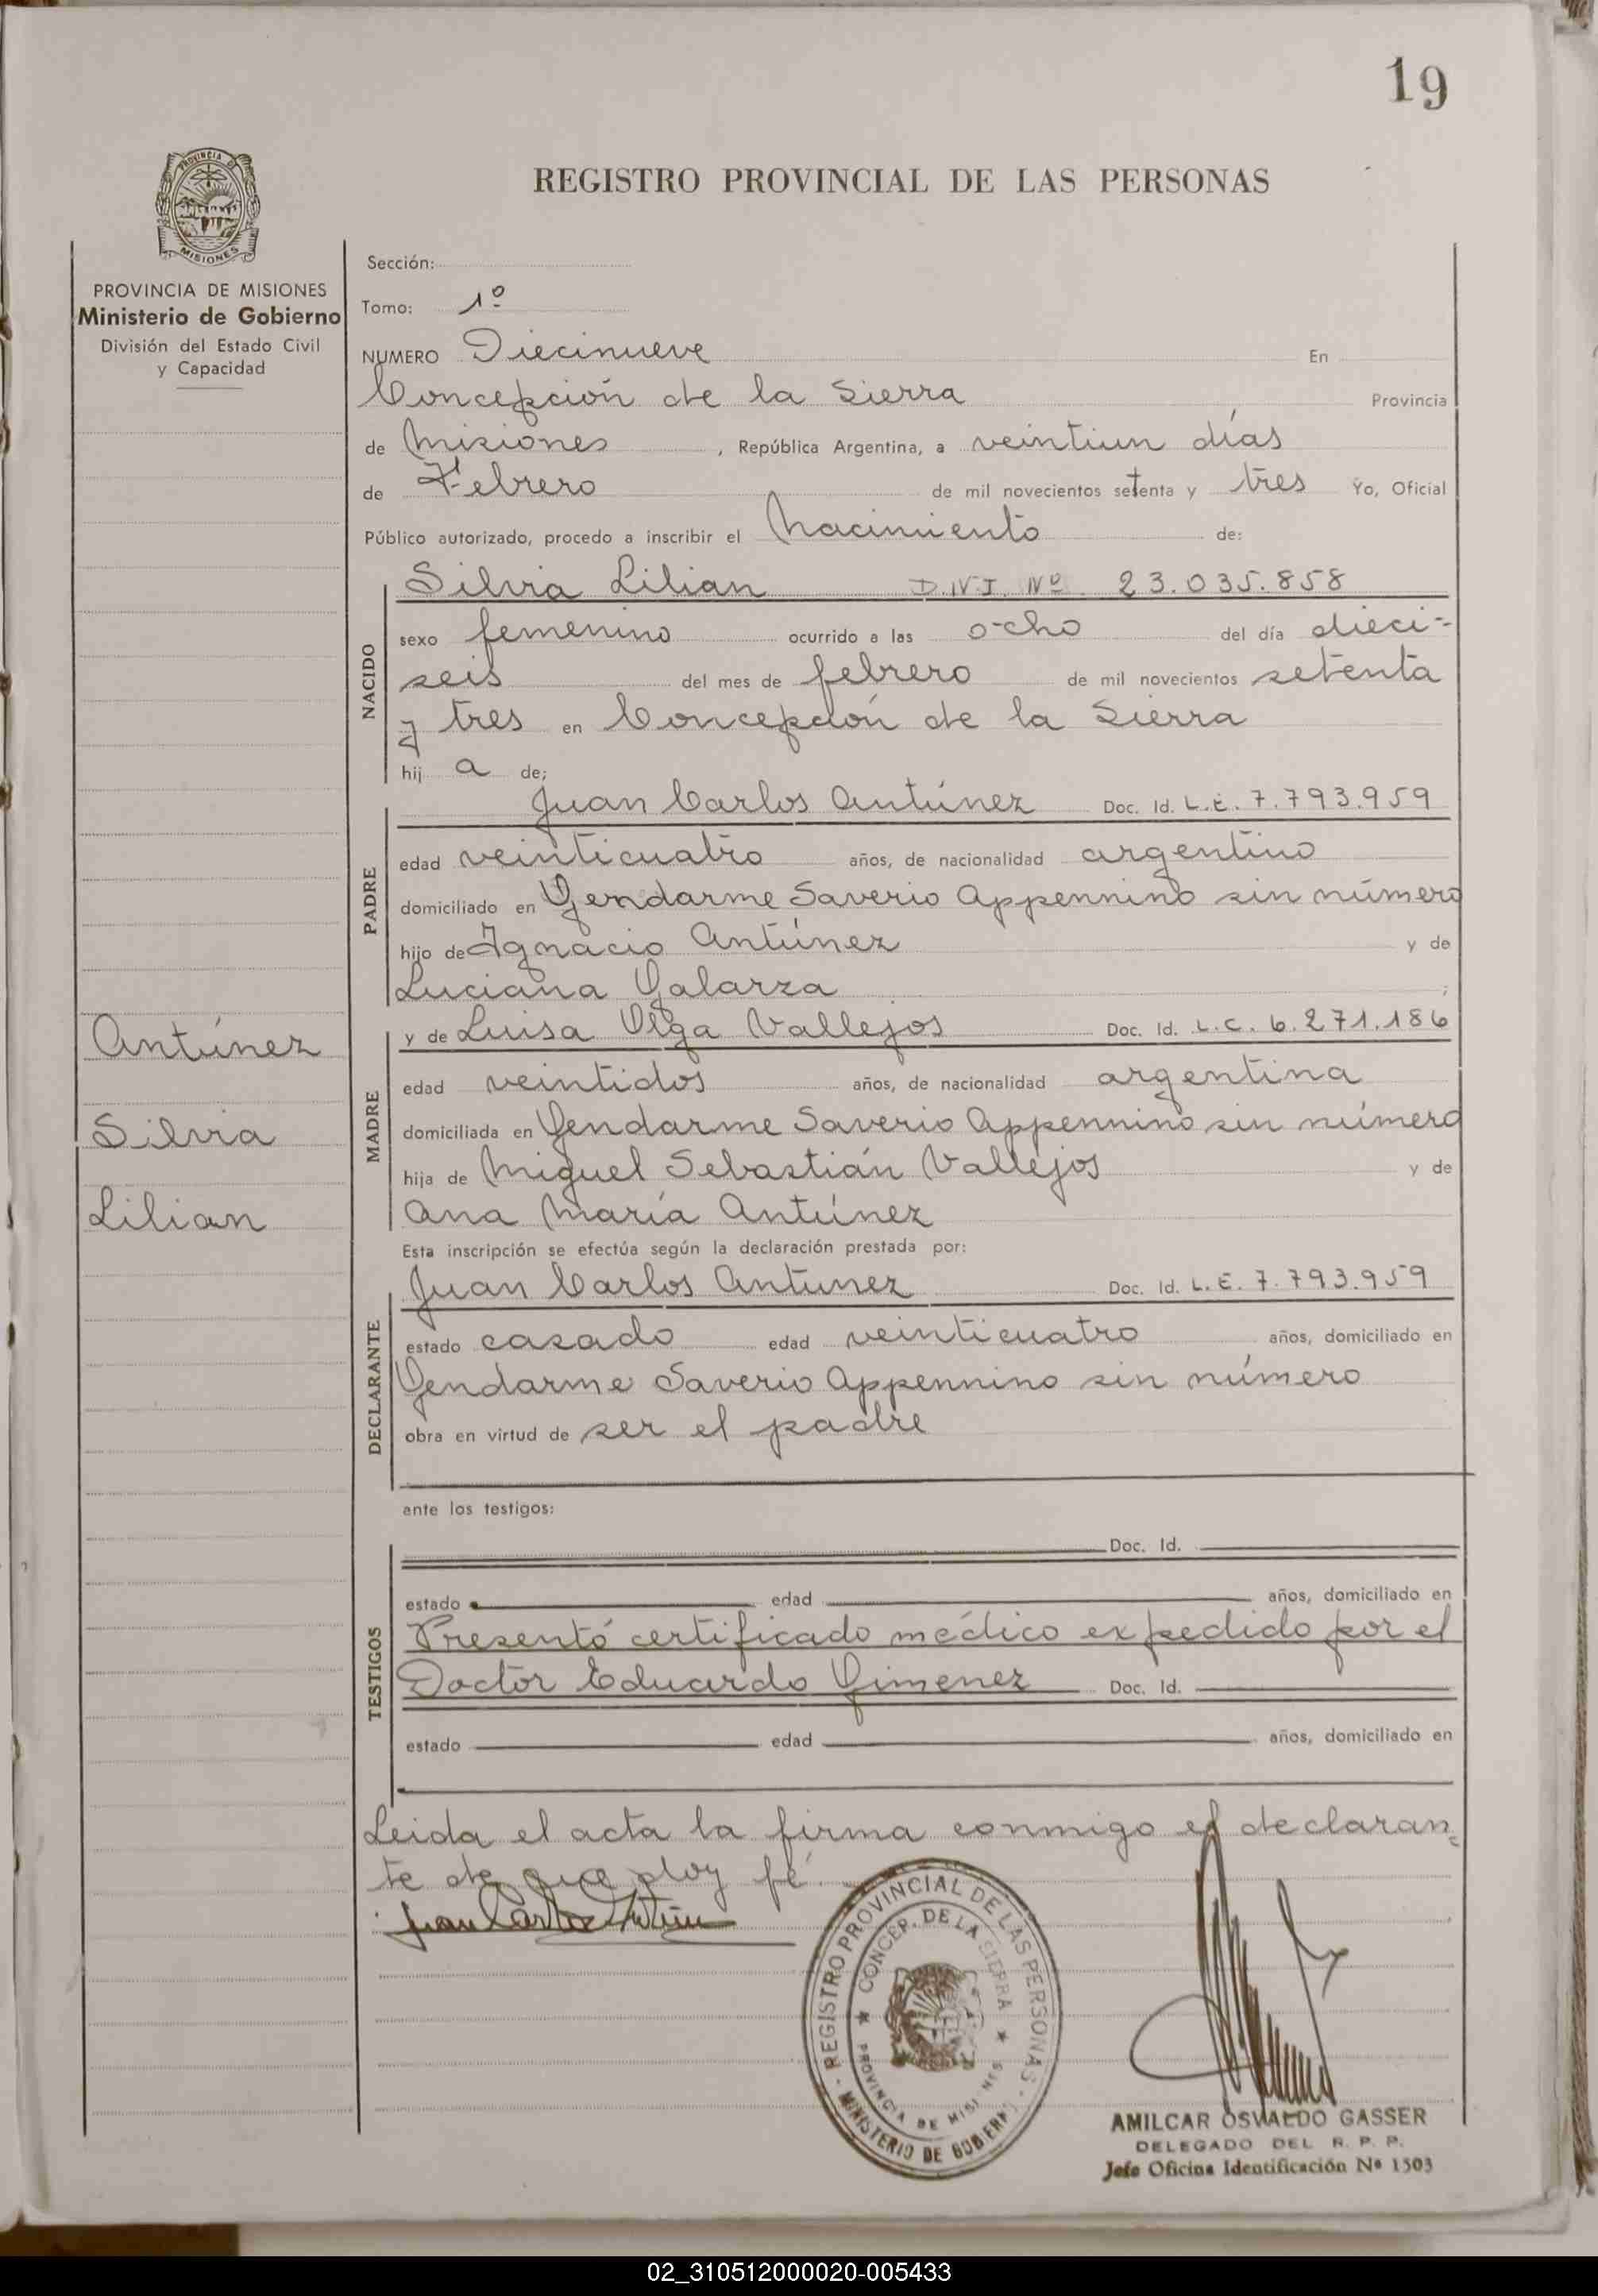 19
REGISTRO PROVINCIAL DE LAS PERSONAS
PROVINCIA DE MISIONES
PROVINCIA DE MISIONES
Ministerio de Gobierno
División del Estado Civil
y Capacidad
Antúnez
Silvia
Lilian
Sección:
Tomo: 1º
NUMERO Diecinueve En
Concepción de la Sierra Provincia
de Misiones, República Argentina, a veintiun días
de Febrero de mil novecientos setenta y tres Yo, Oficial
Público autorizado, procedo a inscribir el Nacimiento de:
NACIDO
Silvia Lilian D.N.I. Nº 23.035.858
sexo femenino ocurrido a las ocho del día dieci-
seis del mes de febrero de mil novecientos setenta
y tres en Concepción de la Sierra
hij a de;
PADRE
Juan Carlos Antúnez Doc. Id. L.E. 7.793.959
edad veinticuatro años, de nacionalidad argentino
domiciliado en Gendarme Saverio Appennino sin número
hijo de Ignacio Antúnez y de
Luciana Galarza ;
MADRE
y de Luisa Olga Vallejos Doc. Id. L.C. 6.271.186
edad veintidos años, de nacionalidad argentina
domiciliada en Gendarme Saverio Appennino sin número
hija de Miguel Sebastián Vallejos y de
Ana María Antúnez
Esta inscripción se efectúa según la declaración prestada por:
DECLARANTE
Juan Carlos Antunez Doc. Id. L.E. 7.793.959
estado casado edad veinticuatro años, domiciliado en
Gendarme Saverio Appennino sin número
obra en virtud de ser el padre
ante los testigos:
TESTIGOS
Doc. Id.
estado edad años, domiciliado en
Presentó certificado médico expedido por el
Doctor Eduardo Gimenez Doc. Id.
estado edad años, domiciliado en
Leida el acta la firma conmigo el declaran=
te de que doy fé.
Juan Carlos Antúnez
REGISTRO PROVINCIAL DE LAS PERSONAS - MINISTERIO DE GOBIERNO -
CONCEP. DE LA SIERRA ★ PROVINCIA DE MISIONES ★
AMILCAR OSVALDO GASSER
DELEGADO DEL R. P. P.
Jefe Oficina Identificación Nº 1503
02_310512000020-005433